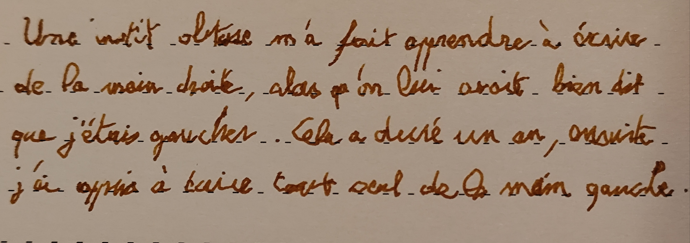 Une instit obtuse m'a fait apprendre à écrire
de la main droite, alors qu'on lui avait bien dit
que j'étais gaucher. Cela a duré un an, ensuite
j'ai appris à écrire tout seul de la main gauche.